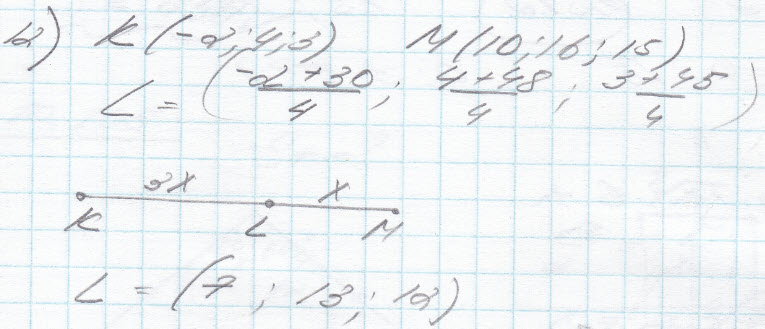 2) K(-2;4;3) M(10;16;15)
L = (\frac{-2+30}{4}; \frac{4+48}{4}; \frac{3+45}{4})
3x x
K L M
L = (7; 13; 12)